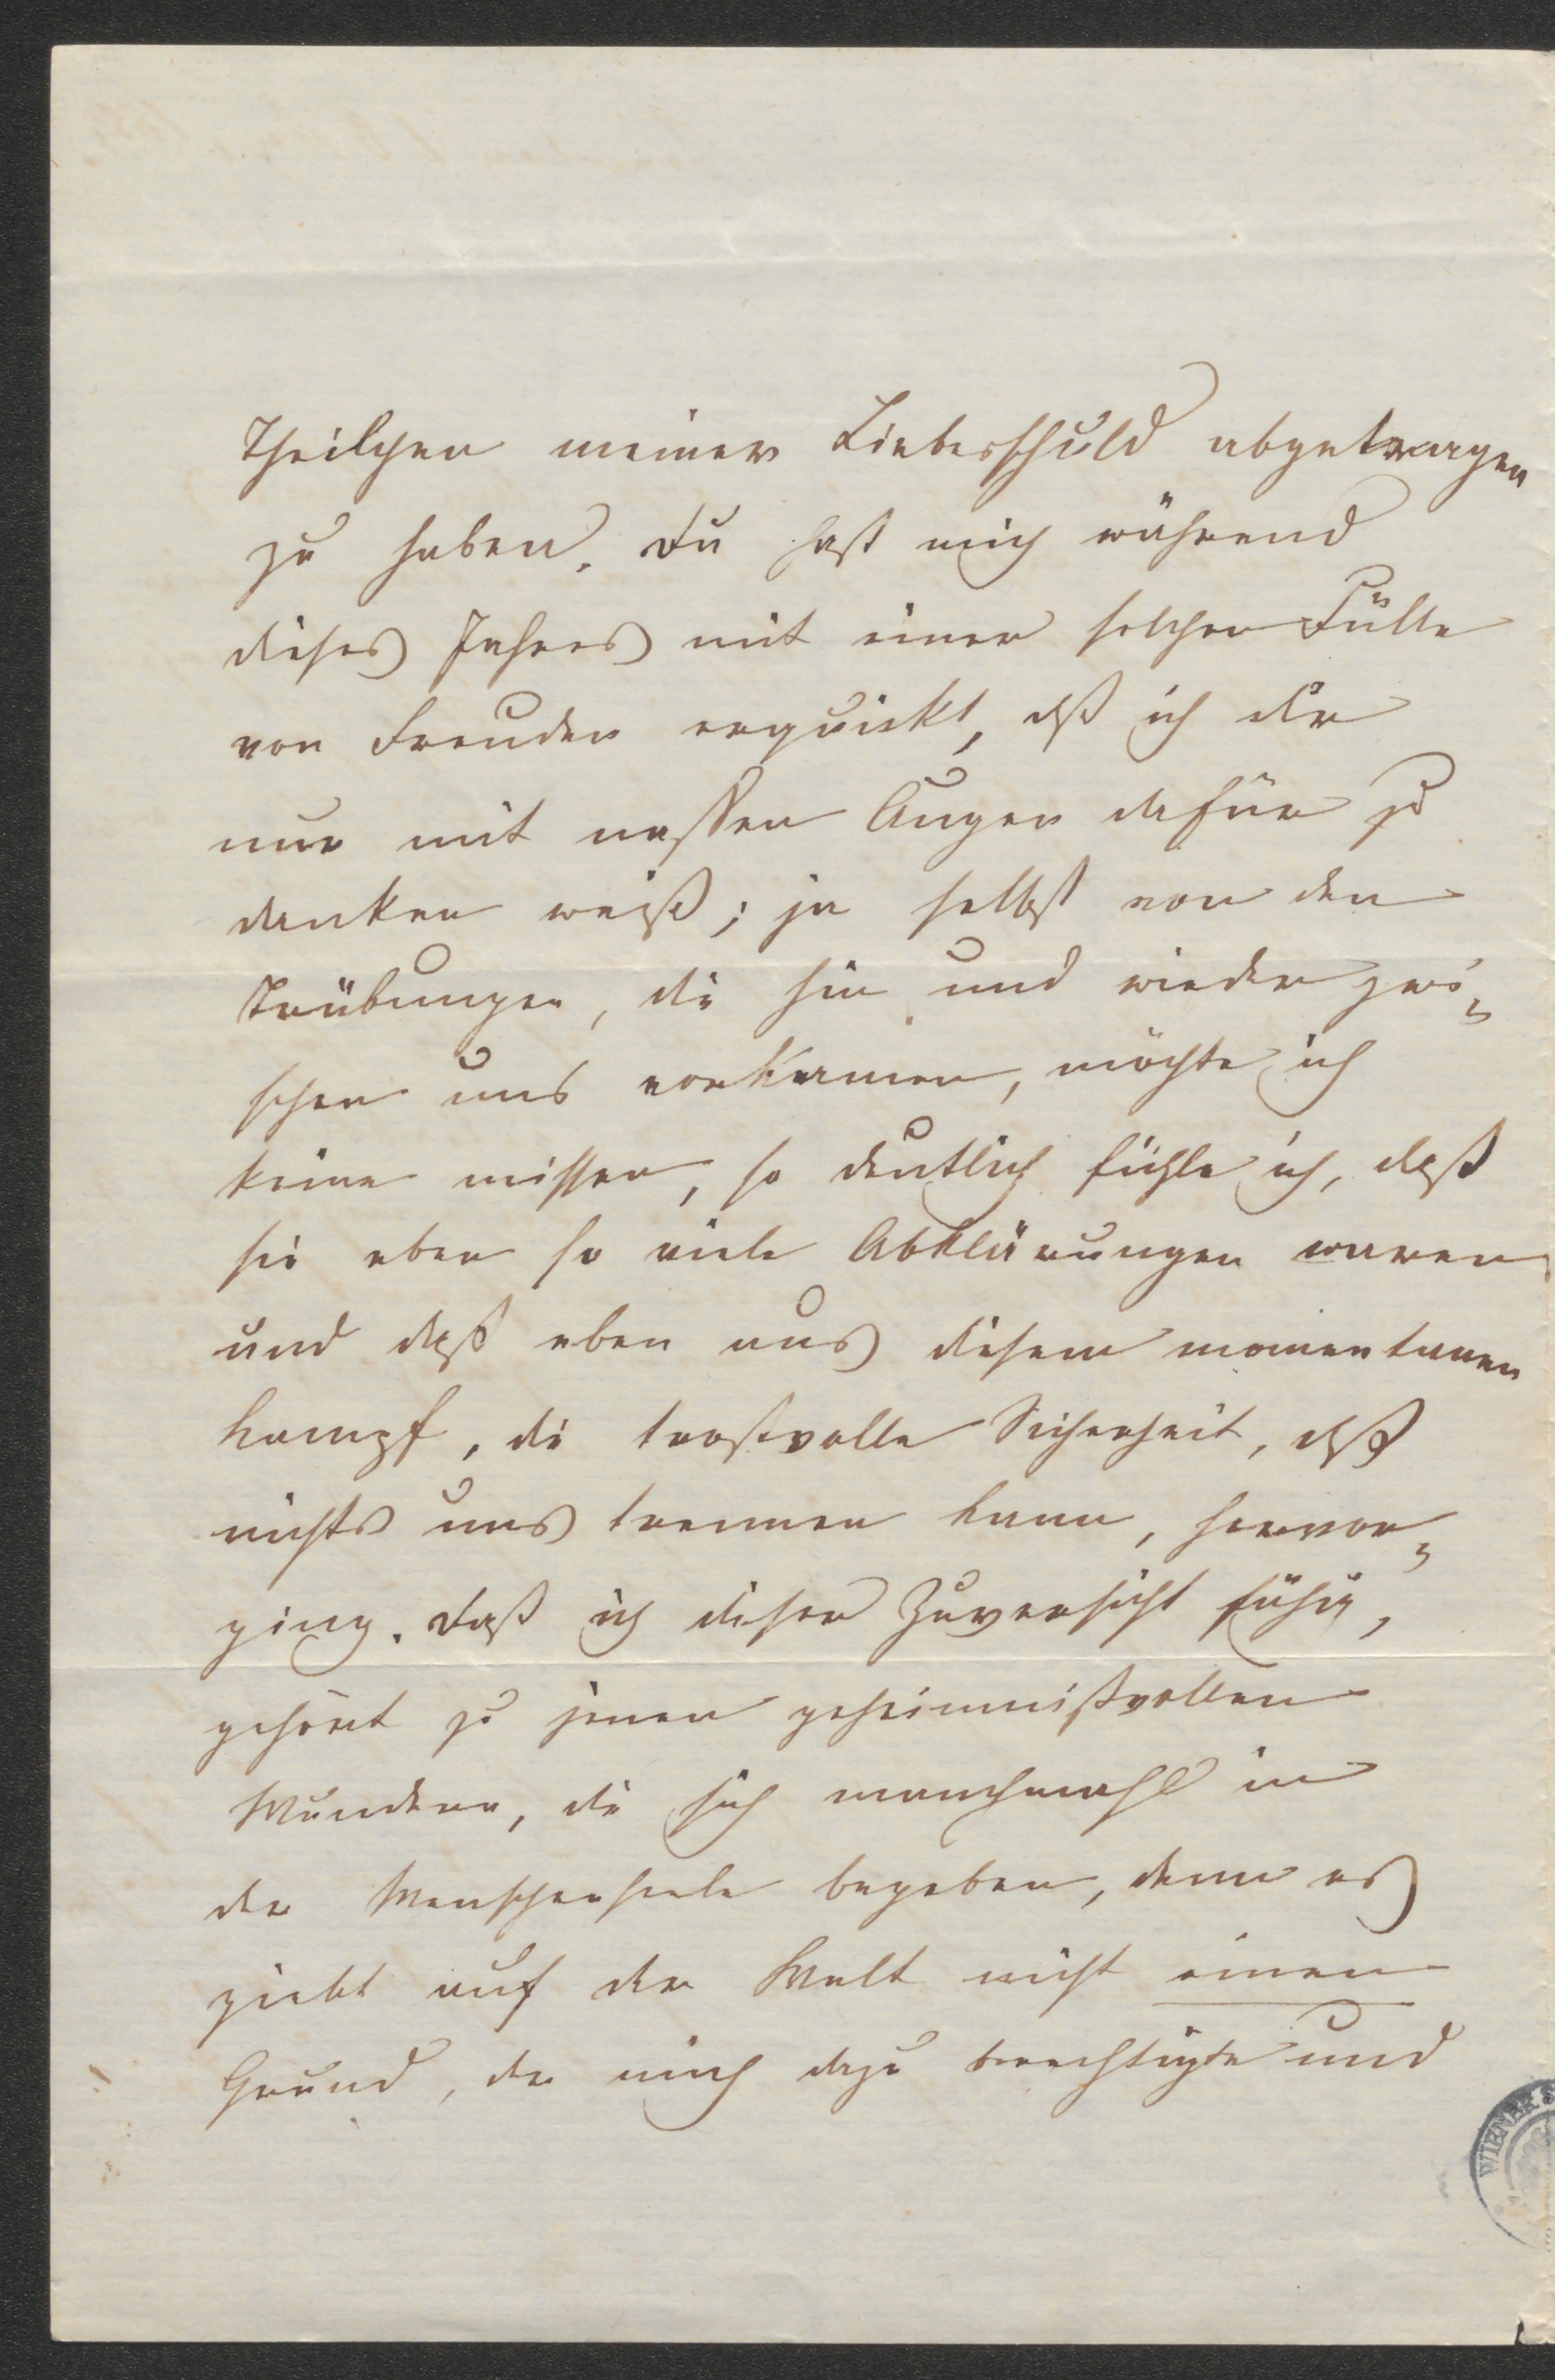 Theilchen meiner Liebesschuld abgetragen
zu haben. Du hast mich während
dieses Jahres mit einer solchen Fülle
von Freuden erquickt, dß ich dir
nur mit nassen Augen dafür zu
danken weiß; ja selbst von den
Trübungen, die hin und wieder zwi⸗
schen uns vorkamen, möchte ich
keine missen, so deutlich fühle ich, daß
sie eben so viele Abklärungen waren
und daß eben aus diesem momentanen
Kampf, die trostvolle Sicherheit, dß
nichts uns trennen kann, hervor⸗
ging. Daß ich dieser Zuversicht fähig,
gehört zu jenen geheimnißvollen
Wundern, die sich manchmahl in
der Menschenseele begeben, denn es
giebt auf der Welt nicht einen
Grund, der mich dazu berechtigte und
WIENER S